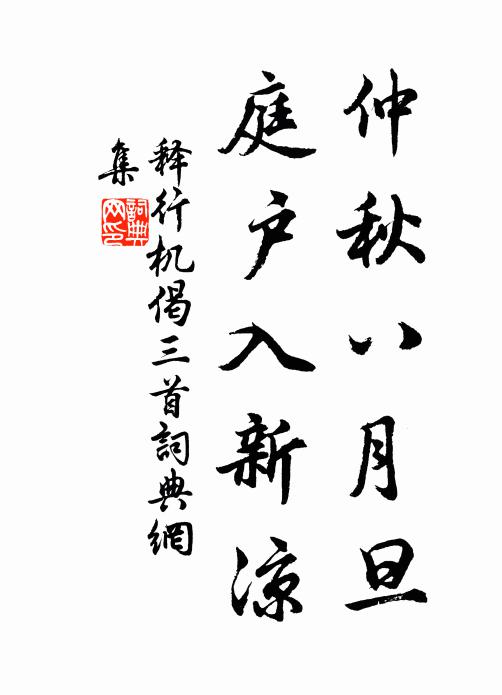 仲秋八月旦
庭户入新凉
释行机偈三首詞典網
集
詞典网印